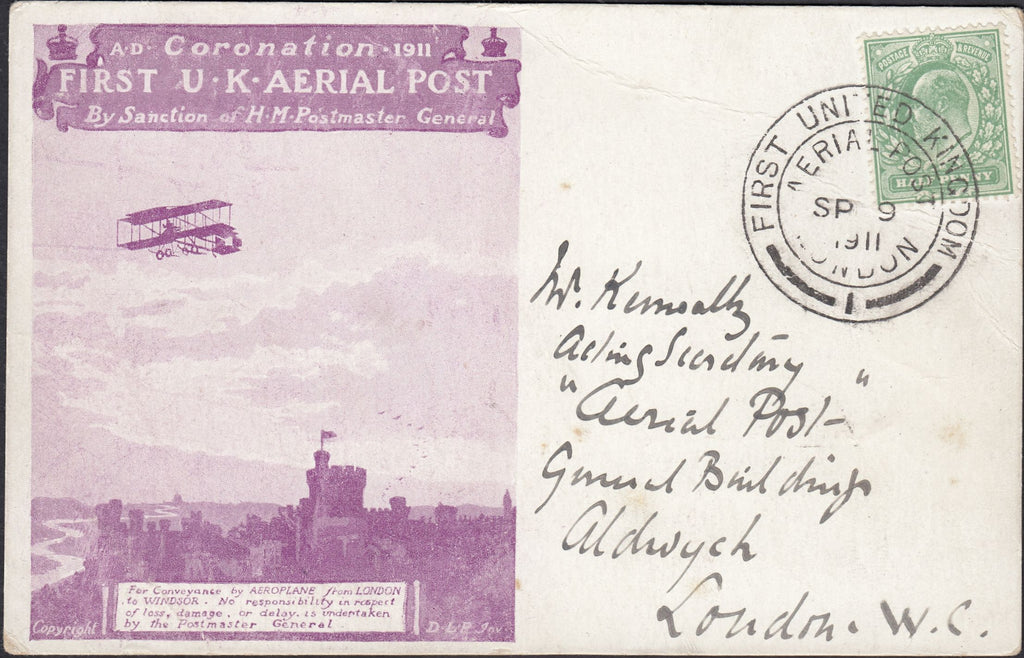 A·D· Coronation · 1911
FIRST U·K·AERIAL POST
By Sanction of H·M·Postmaster General
For Conveyance by AEROPLANE from LONDON
to WINDSOR. No responsibility in respect
of loss, damage, or delay, is undertaken
by the Postmaster General.
Copyright
D·L·P Inv.
POSTAGE & REVENUE
HALF PENNY
FIRST UNITED KINGDOM
AERIAL POST
SP 9
1911
LONDON
1
Acting Secretary
"Aerial Post"
General Buildings
Aldwych
London. W.C.